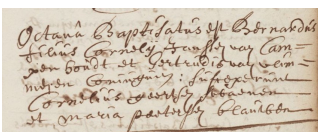 Octava Baptisatus est Bernardus
filius Cornelij Janssen van Cam-
pen boudt et Gertrudis van
meren coniugum: susceperunt
Cornelius peeters
et Maria peeters